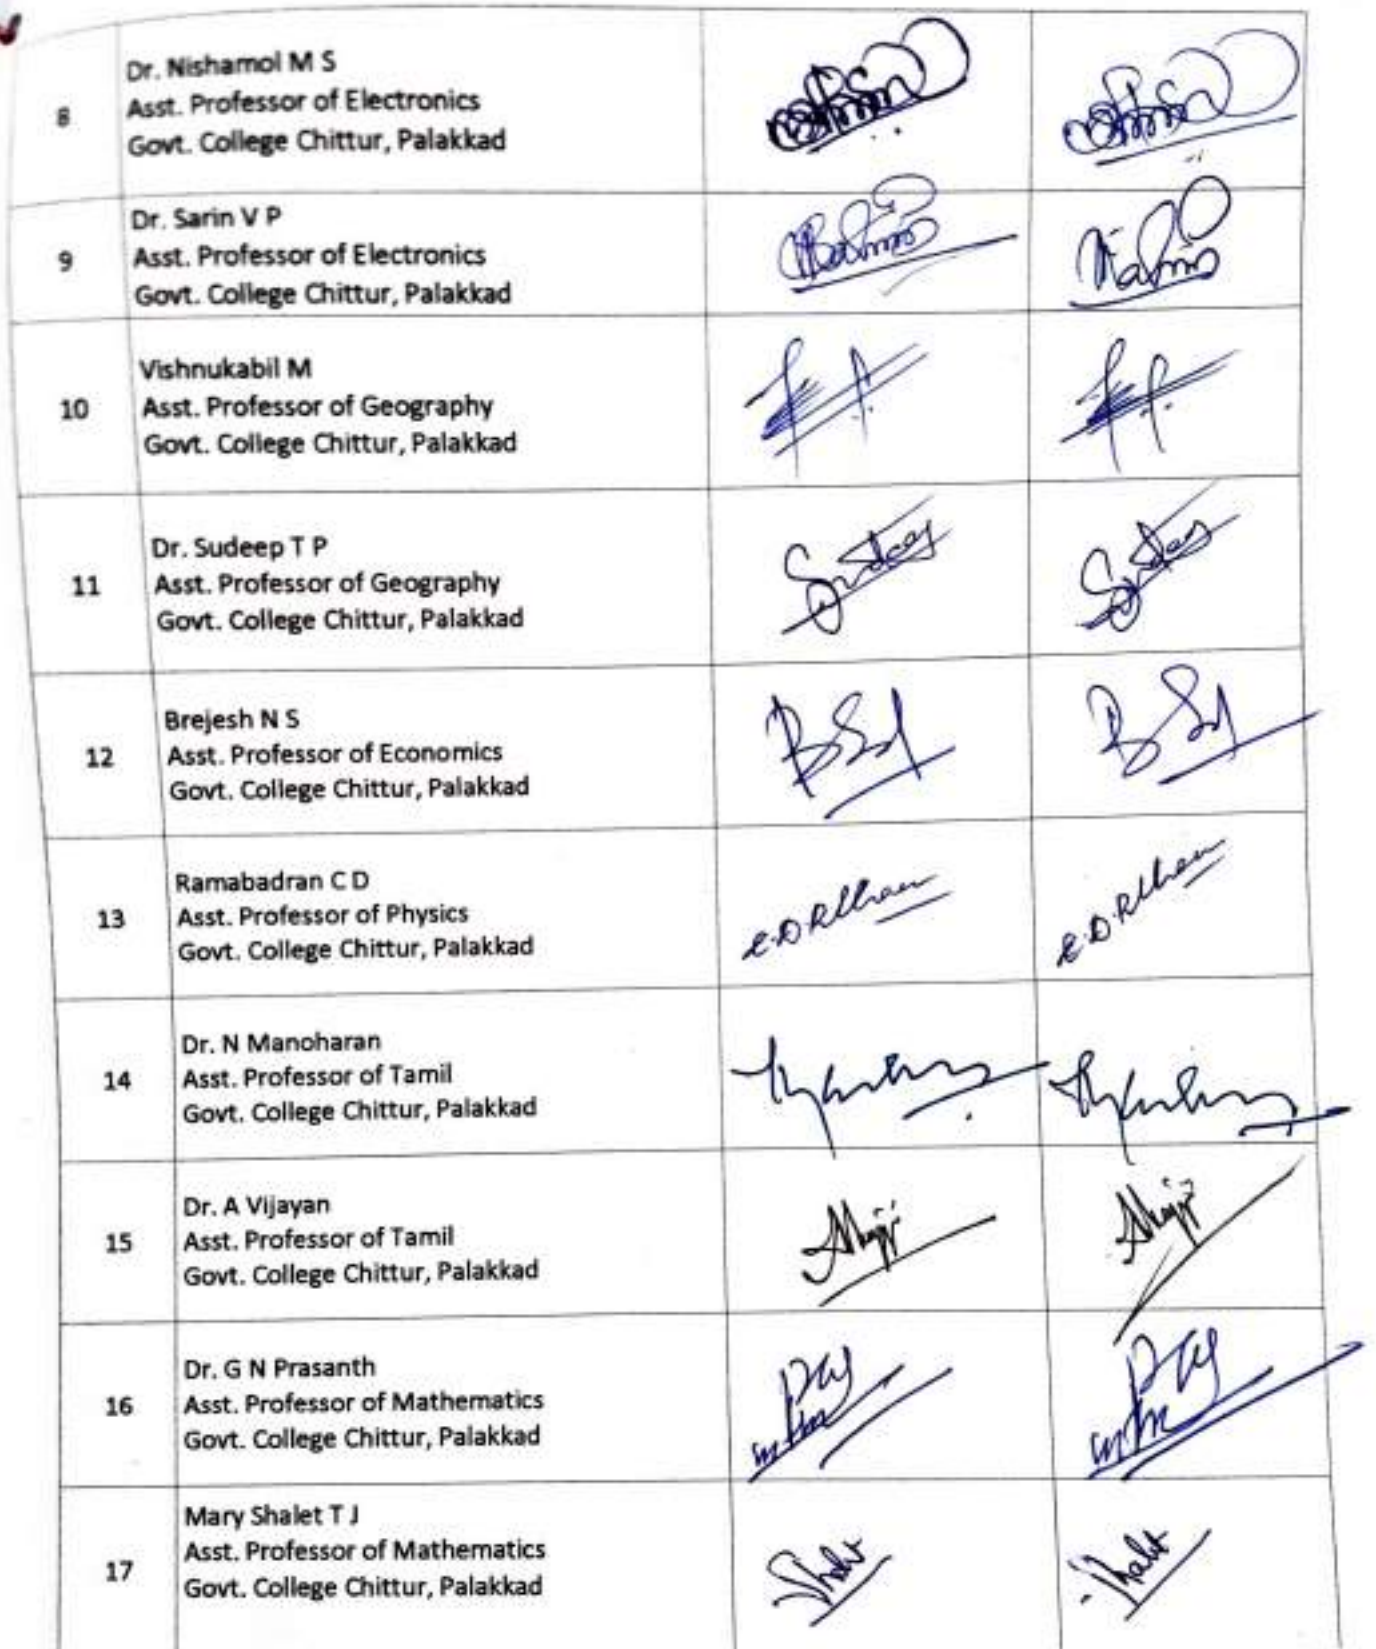 8
Dr. Nishamol M S
Asst. Professor of Electronics
Govt. College Chittur, Palakkad
9
Dr. Sarin V P
Asst. Professor of Electronics
Govt. College Chittur, Palakkad
10
Vishnukabil M
Asst. Professor of Geography
Govt. College Chittur, Palakkad
11
Dr. Sudeep T P
Asst. Professor of Geography
Govt. College Chittur, Palakkad
12
Brejesh N S
Asst. Professor of Economics
Govt. College Chittur, Palakkad
13
Ramabadran C D
Asst. Professor of Physics
Govt. College Chittur, Palakkad
14
Dr. N Manoharan
Asst. Professor of Tamil
Govt. College Chittur, Palakkad
15
Dr. A Vijayan
Asst. Professor of Tamil
Govt. College Chittur, Palakkad
16
Dr. G N Prasanth
Asst. Professor of Mathematics
Govt. College Chittur, Palakkad
17
Mary Shalet T J
Asst. Professor of Mathematics
Govt. College Chittur, Palakkad